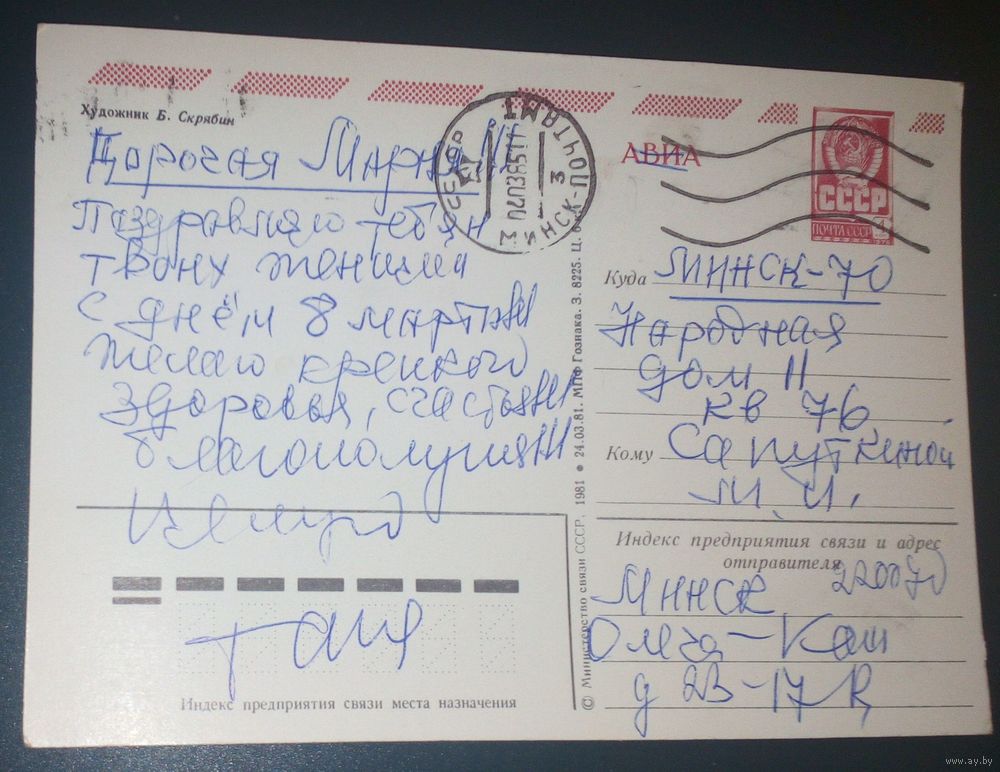 Художник Б. Скрябин
Дорогая Мария!!!
Поздравляю тебя
твоих женщин
с днём 8 марта!!!
желаю крепкого
здоровья, счастья!!!
благополучия!!!
Целую
Таня
Индекс предприятия связи места назначения
© Министерство связи СССР. 1981 • 24.03.81. МПФ Гознака. З. 8225. Ц.
СССР
МИНСК-ПОЧТАМТ
3
АВИА
СССР
ПОЧТА СССР
4
Куда Минск-70
Народная
дом 11
кв 76
Кому Сапуткиной
М. И.
Индекс предприятия связи и адрес
отправителя
220070
Минск
д 23-17
www.ay.by